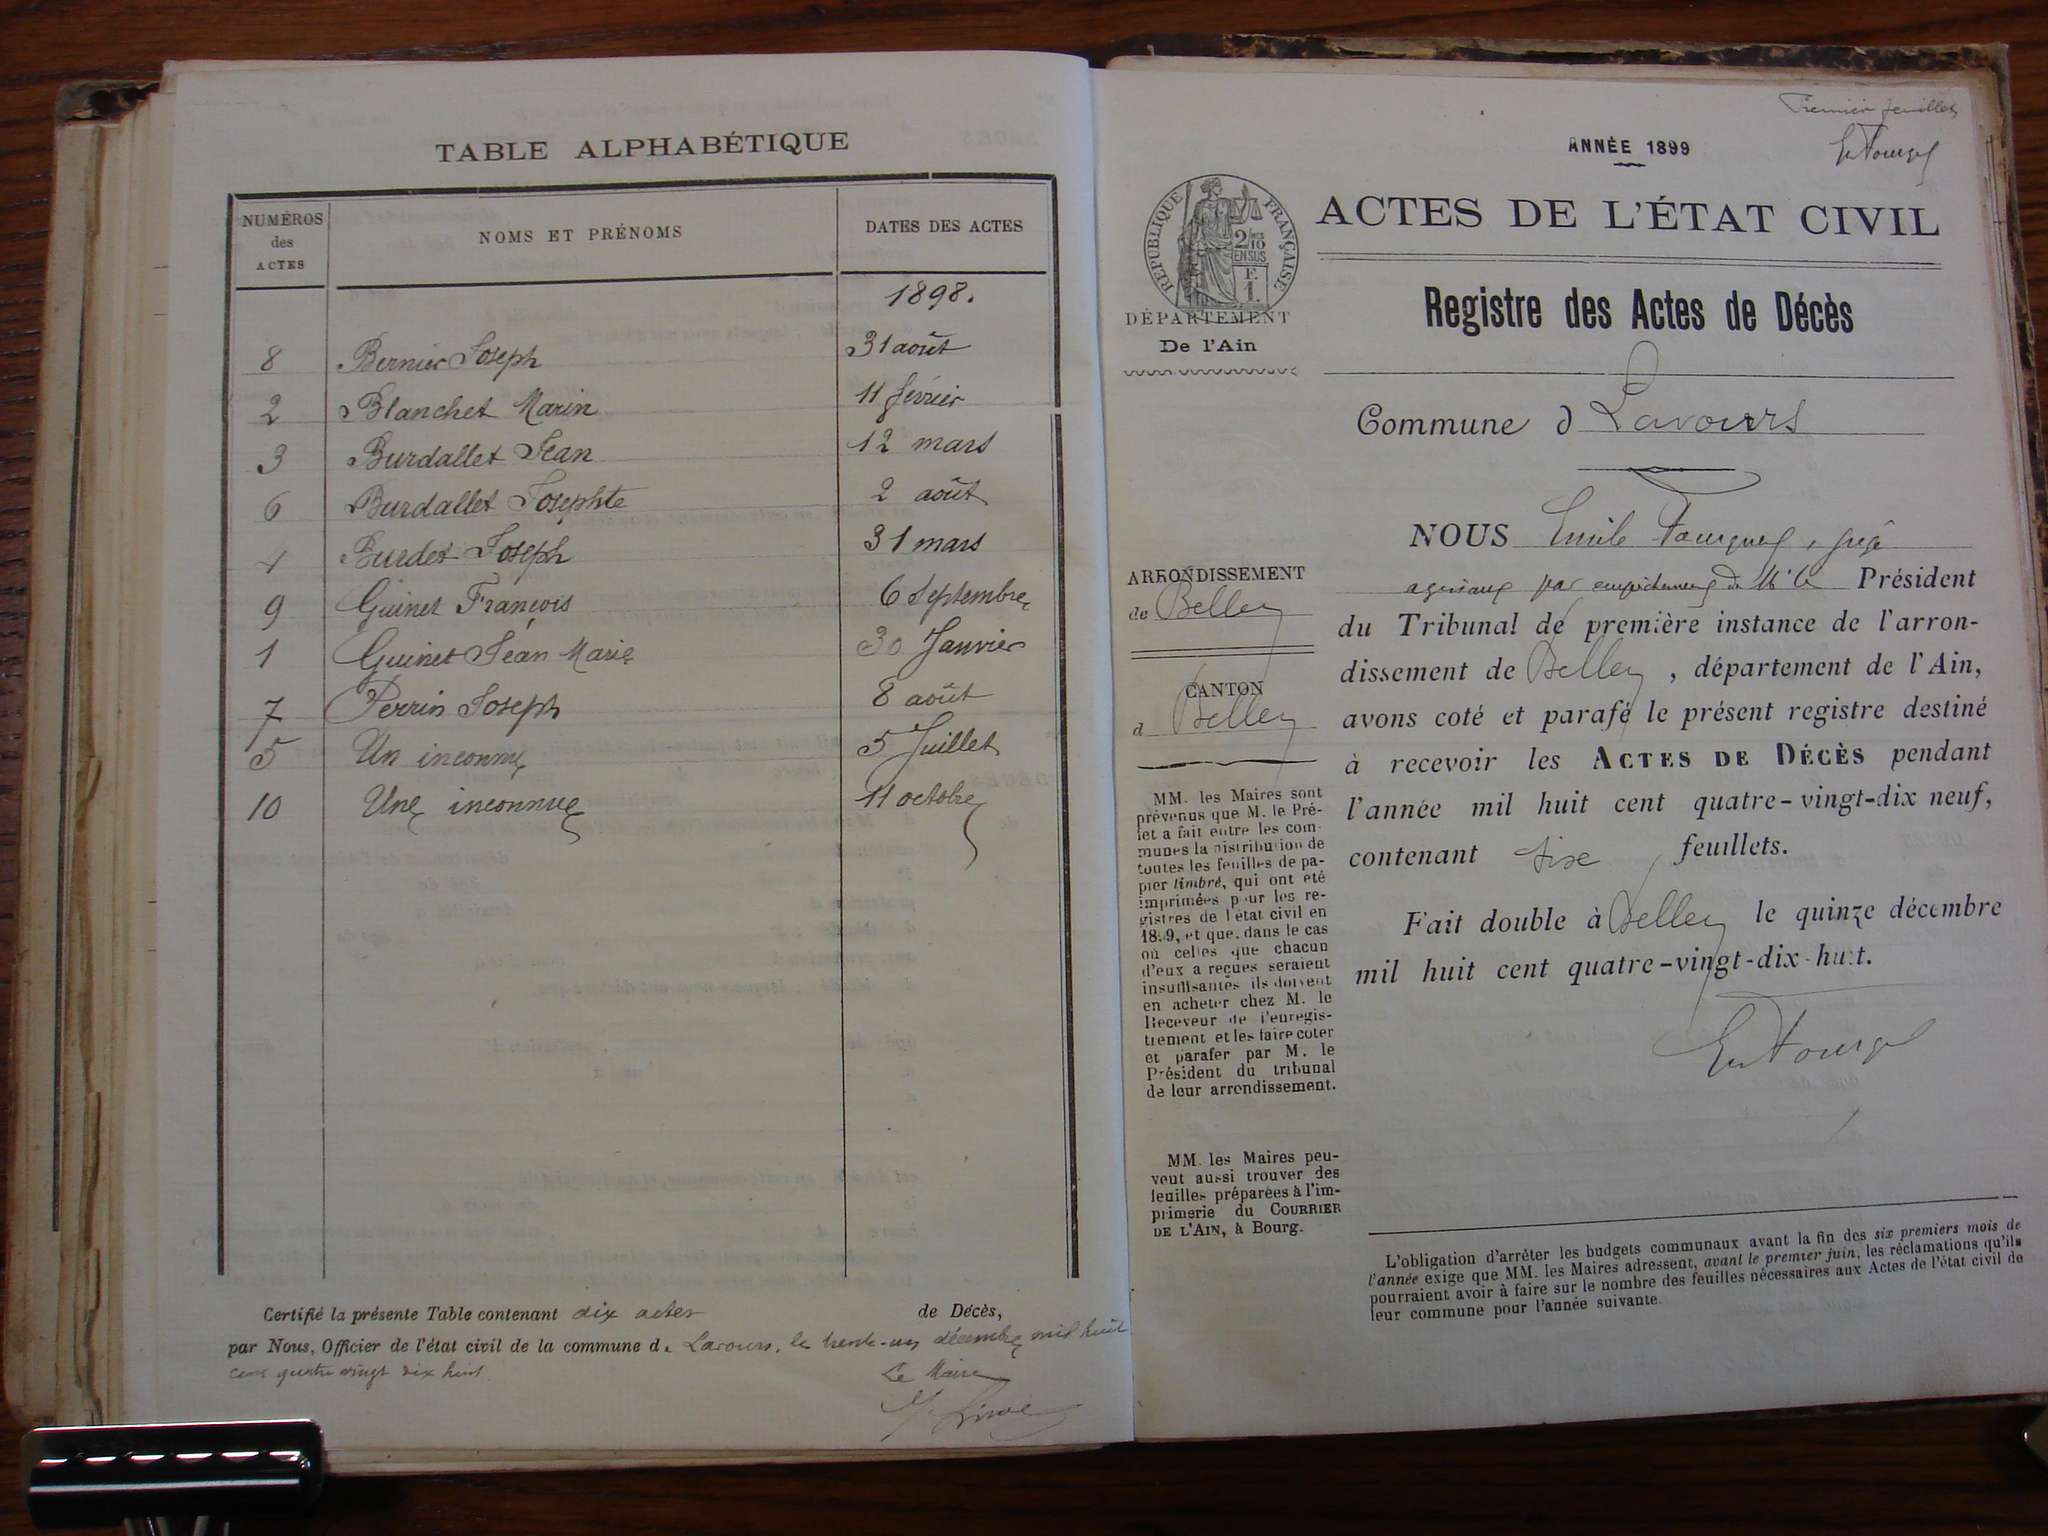 TABLE ALPHABÉTIQUE
NUMÉROS des ACTES
NOMS ET PRÉNOMS
DATES DES ACTES
1898.
8 Bernier Joseph 31 août
2 Blanchet Marin 11 février
3 Burdallet Jean 12 mars
6 Burdallet Josephte 2 août
4 Burdet Joseph 31 mars
9 Guinet François 6 Septembre
1 Guinet Jean Marie 30 Janvier
7 Perrin Joseph 8 août
5 Un inconnu 5 Juillet
10 Une inconnue 11 octobre
Certifié la présente Table contenant dix actes de Décès,
par Nous, Officier de l'état civil de la commune d. Lavours, le trente-un décembre mil huit
cent quatre vingt dix huit.
Le Maire
Premier feuillet
ANNÉE 1899
ACTES DE L'ÉTAT CIVIL
RÉPUBLIQUE FRANÇAISE
2/10 EN SUS
F. 1.
DÉPARTEMENT
De l'Ain
Registre des Actes de Décès
Commune d Lavours
ARRONDISSEMENT
de Belley
CANTON
d Belley
MM. les Maires sont
prévenus que M. le Pré-
fet a fait entre les com-
munes la distribution de
toutes les feuilles de pa-
pier timbré, qui ont été
imprimées pour les re-
gistres de l'état civil en
1899, et que, dans le cas
où celles que chacun
d'eux a reçues seraient
insuffisantes ils doivent
en acheter chez M. le
Receveur de l'enregis-
trement et les faire coter
et parafer par M. le
Président du tribunal
de leur arrondissement.
MM. les Maires peu-
vent aussi trouver des
feuilles préparées à l'im-
primerie du COURRIER
DE L'AIN, à Bourg.
NOUS Emile juge
par empêchement de Mr le Président
du Tribunal de première instance de l'arron-
dissement de Belley, département de l'Ain,
avons coté et parafé le présent registre destiné
à recevoir les ACTES DE DÉCÈS pendant
l'année mil huit cent quatre-vingt-dix neuf,
contenant six feuillets.
Fait double à Belley le quinze décembre
mil huit cent quatre-vingt-dix-huit.
L'obligation d'arrêter les budgets communaux avant la fin des six premiers mois de
l'année exige que MM. les Maires adressent, avant le premier juin, les réclamations qu'ils
pourraient avoir à faire sur le nombre des feuilles nécessaires aux Actes de l'état civil de
leur commune pour l'année suivante.